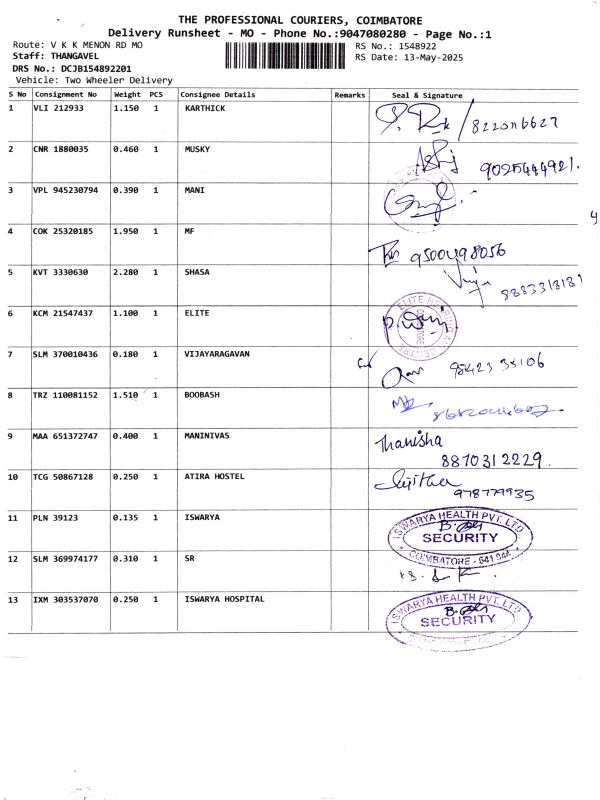 THE PROFESSIONAL COURIERS, COIMBATORE
Delivery Runsheet - MO - Phone No.:9047080280 - Page No.:1
Route: V K K MENON RD MO
RS No.: 1548922
Staff: THANGAVEL
RS Date: 13-May-2025
DRS No.: DCJB154892201
Vehicle: Two Wheeler Delivery
S No Consignment No Weight PCS Consignee Details Remarks Seal & Signature
1 VLI 212933 1.150 1 KARTHICK
2 CNR 1880035 0.460 1 MUSKY
9025444921.
3 VPL 945230794 0.390 1 MANI
4
4 COK 25320185 1.950 1 MF
9500498056
5 KVT 3330630 2.280 1 SHASA
8883318181
6 KCM 21547437 1.100 1 ELITE
7 SLM 370010436 0.180 1 VIJAYARAGAVAN
8 TRZ 110081152 1.510 1 BOOBASH
9 MAA 651372747 0.400 1 MANINIVAS
Thanisha
8870312229.
10 TCG 50867128 0.250 1 ATIRA HOSTEL
978779935
11 PLN 39123 0.135 1 ISWARYA
ISWARYA HEALTH PVT. LTD.
SECURITY
COIMBATORE - 641 044
12 SLM 369974177 0.310 1 SR
13 IXM 303537070 0.250 1 ISWARYA HOSPITAL
ISWARYA HEALTH PVT. LTD.
SECURITY